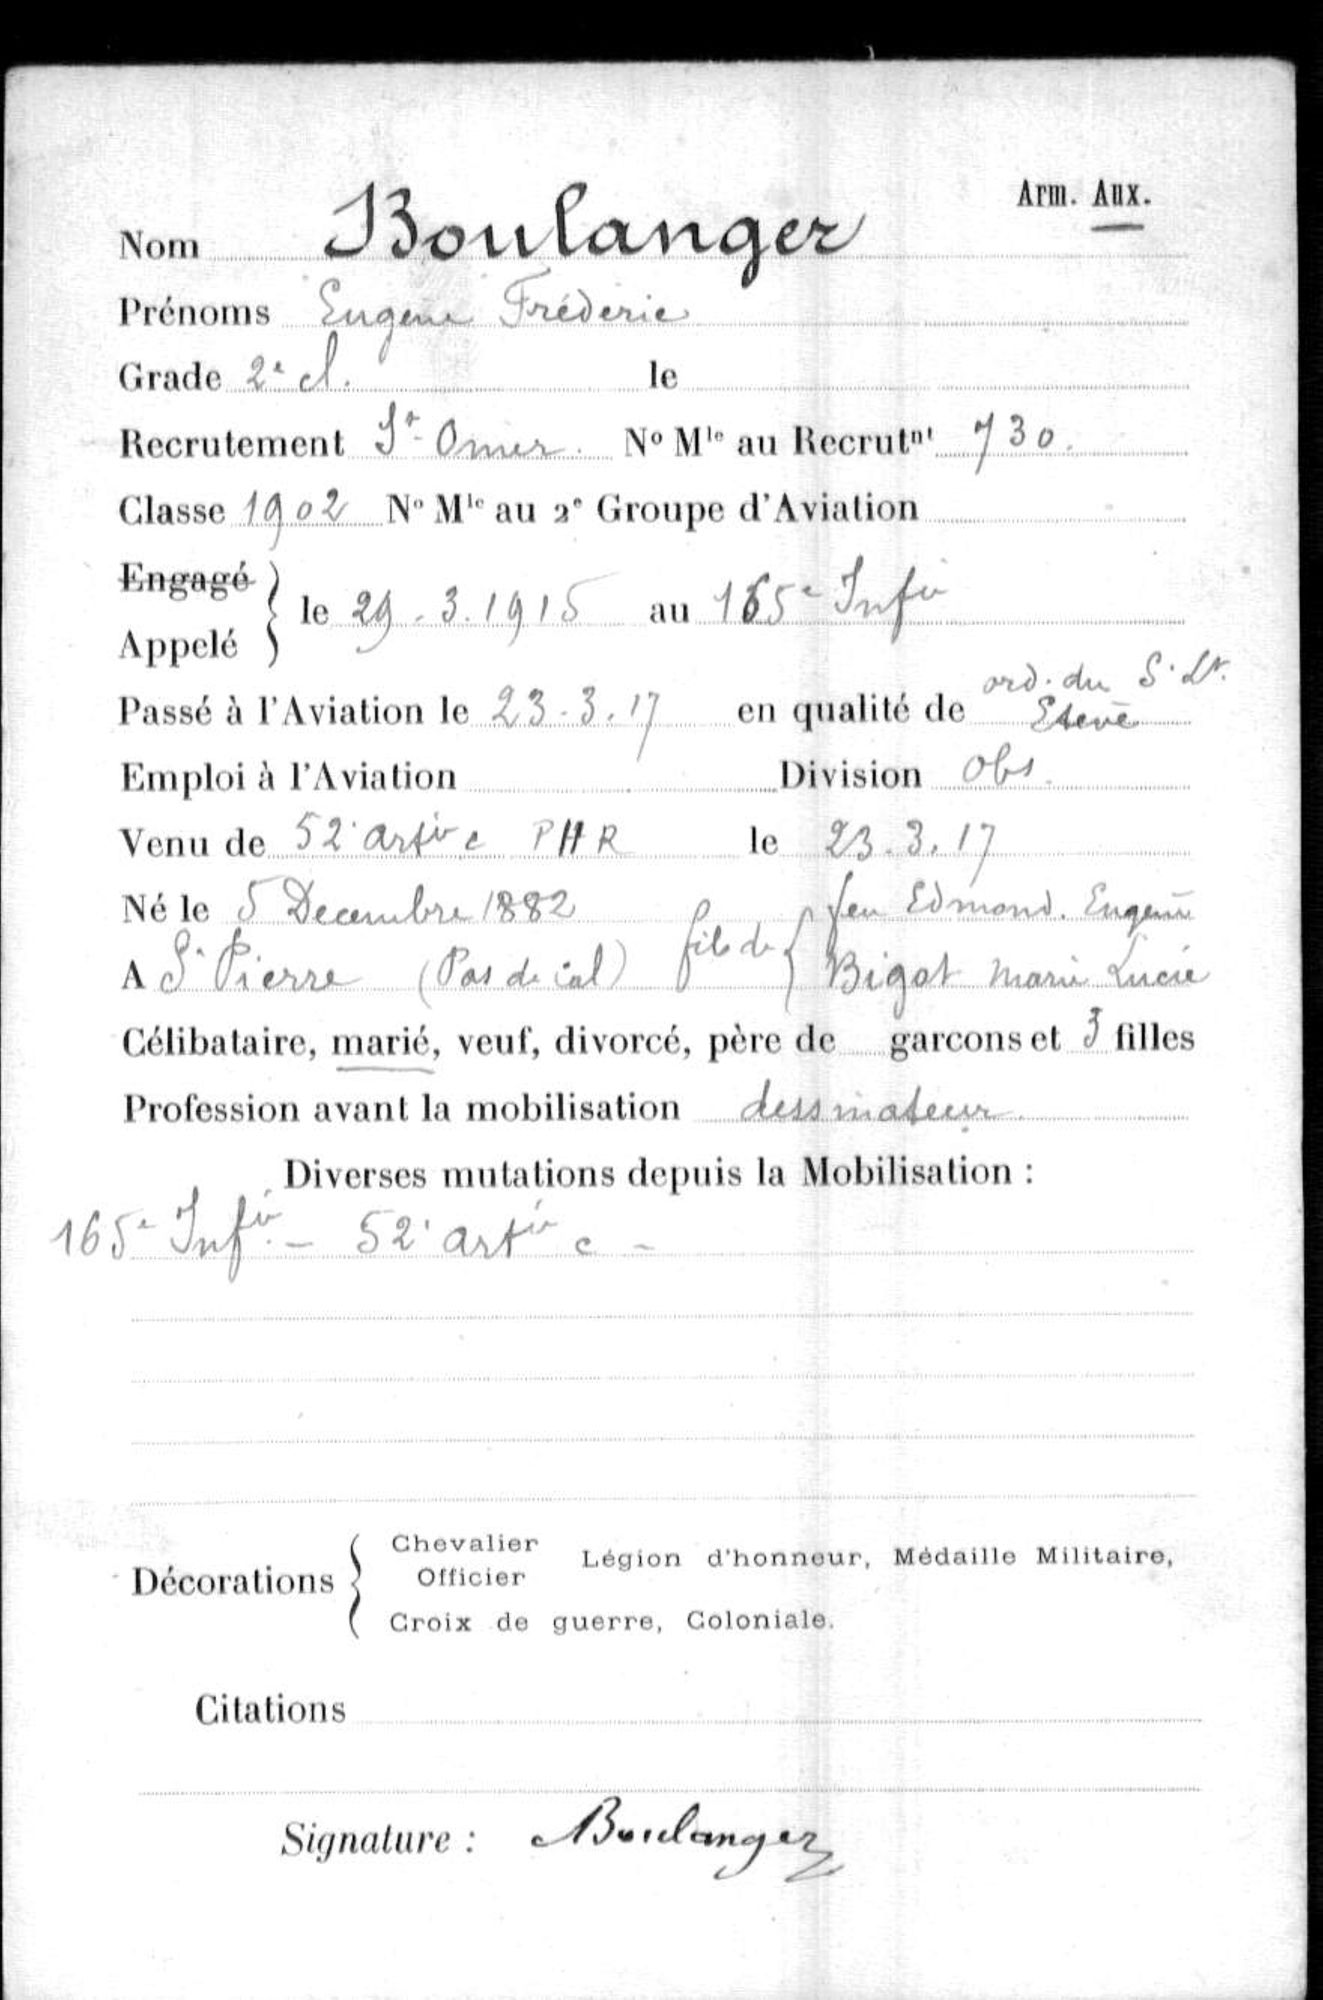 Arm. Aux.
Nom Boulanger
Prénoms Eugène Fréderic
Grade 2e cl. le
Recrutement St-Omer. No Mle au Recrutnt 730.
Classe 1902 No Mle au 2e Groupe d'Aviation
Engagé
Appelé } le 29-3.1915 au 165e Infie
Passé à l'Aviation le 23-3.17 en qualité de ord. du S. Lt.
Emploi à l'Aviation Division Obs.
Venu de 52e artie c PHR le 23.3.17
Né le 5 Decembre 1882 fils de { feu Edmond. Eugène
A St Pierre (Pas de Cal) Bigot Marie Lucie
Célibataire, marié, veuf, divorcé, père de garcons et 3 filles
Profession avant la mobilisation dessinateur
Diverses mutations depuis la Mobilisation :
165e Infie. - 52e artie c -
Décorations { Chevalier
Officier
Légion d'honneur, Médaille Militaire,
Croix de guerre, Coloniale.
Citations
Signature : Boulanger